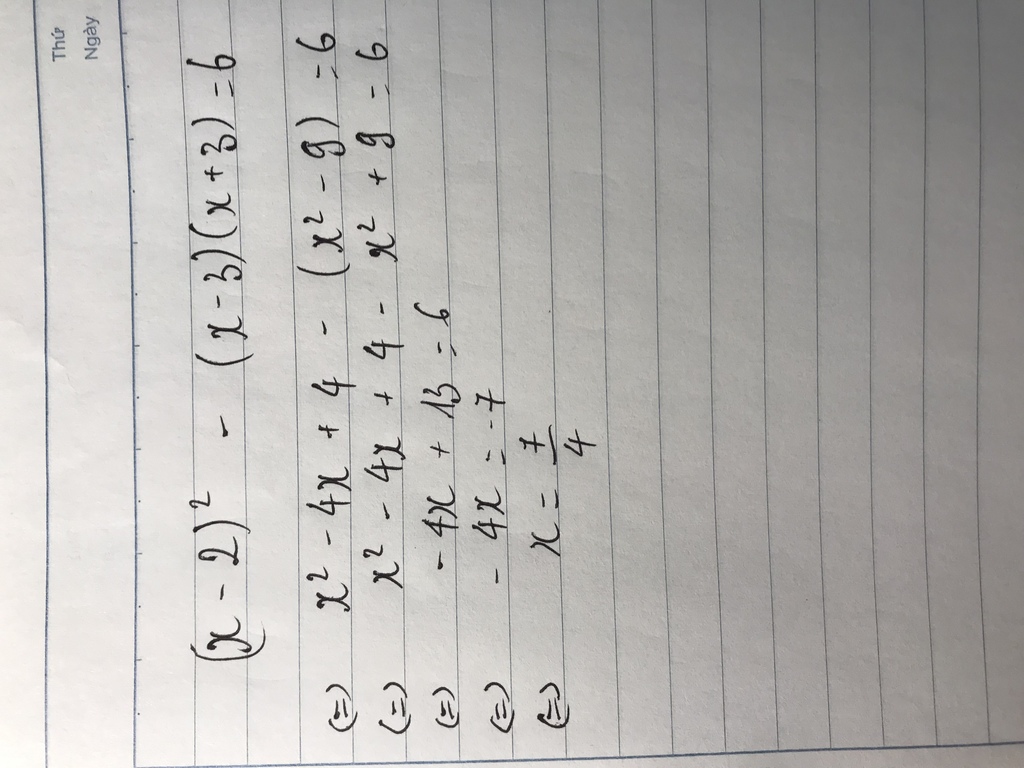 Thứ
Ngày
(x - 2)² - (x - 3)(x + 3) = 6
(=) x² - 4x + 4 - (x² - 9) = 6
(=) x² - 4x + 4 - x² + 9 = 6
(=) - 4x + 13 = 6
(=) - 4x = -7
(=) x = 7/4